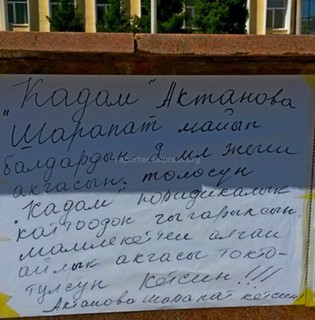 "Кадам" Актанова
"Шарапат майып
балдардын 9 мл жеген
акчасын төлөсүн
"Кадам" юридикалык
каттоодон чыгарылсын.
мамлекеттен алган
айлык акчасы токто-
тулсун кетсин!!!
Актанова Шарапат кетсин